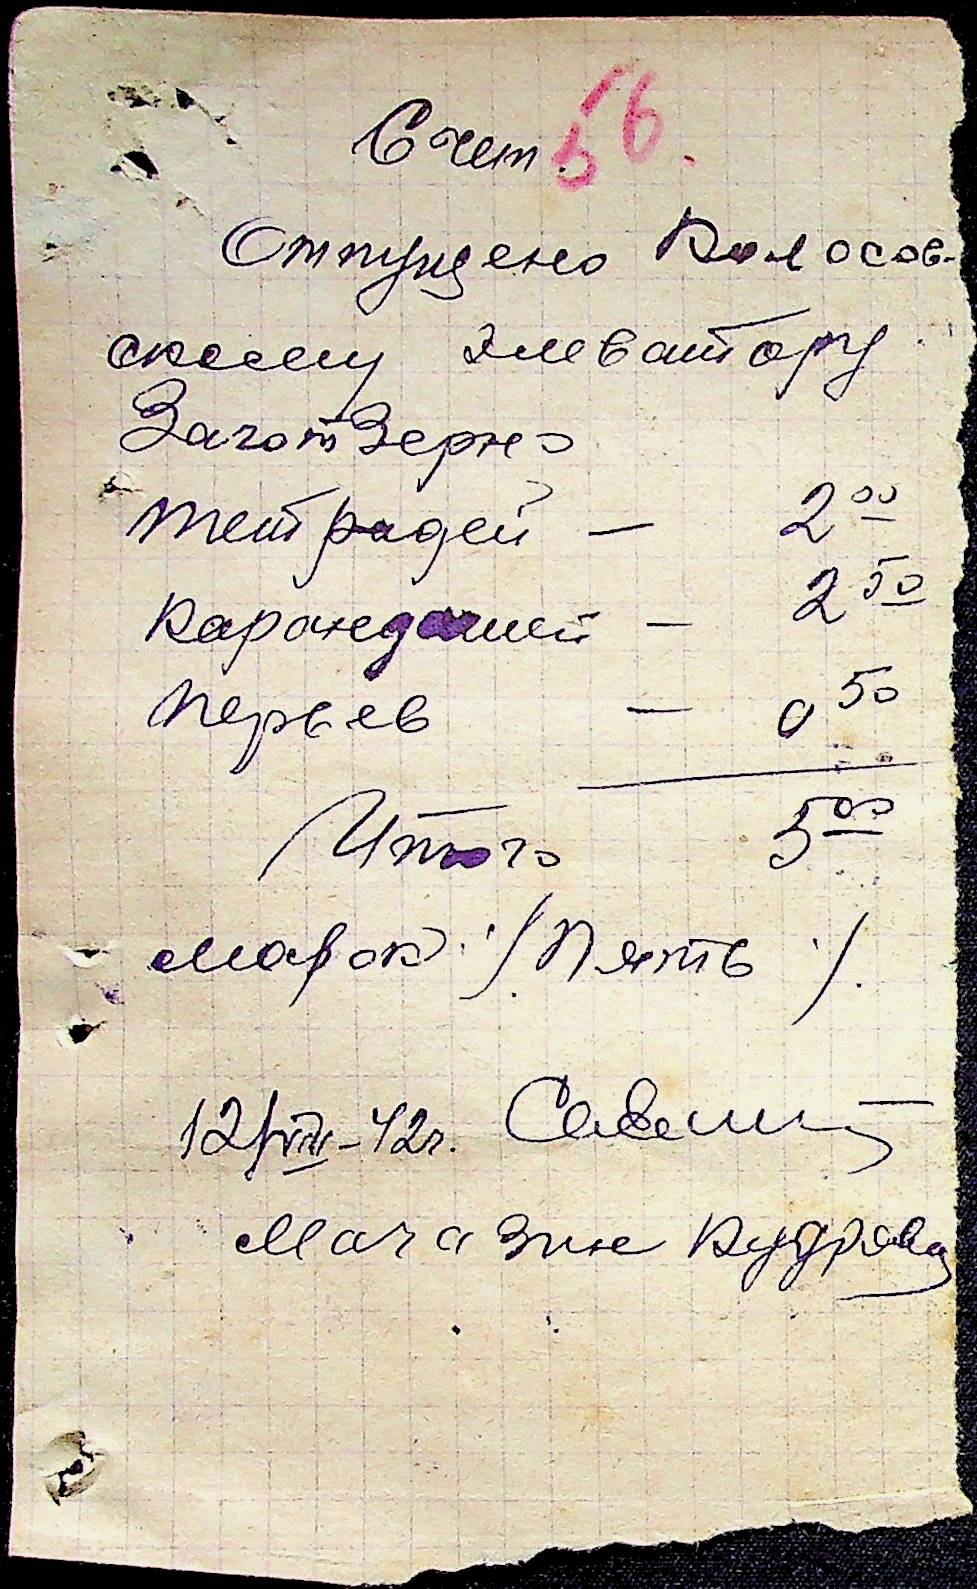 Счет. 56.
Отпущено Волосов-
скому элеватору
ЗаготЗерно
тетрадей — 2 00
карандашей — 2 50
перьев — 0 50
Итого 5 00
марок ·/. Пять ·/.
12/VIII-42г.
Магазин Кудрявц